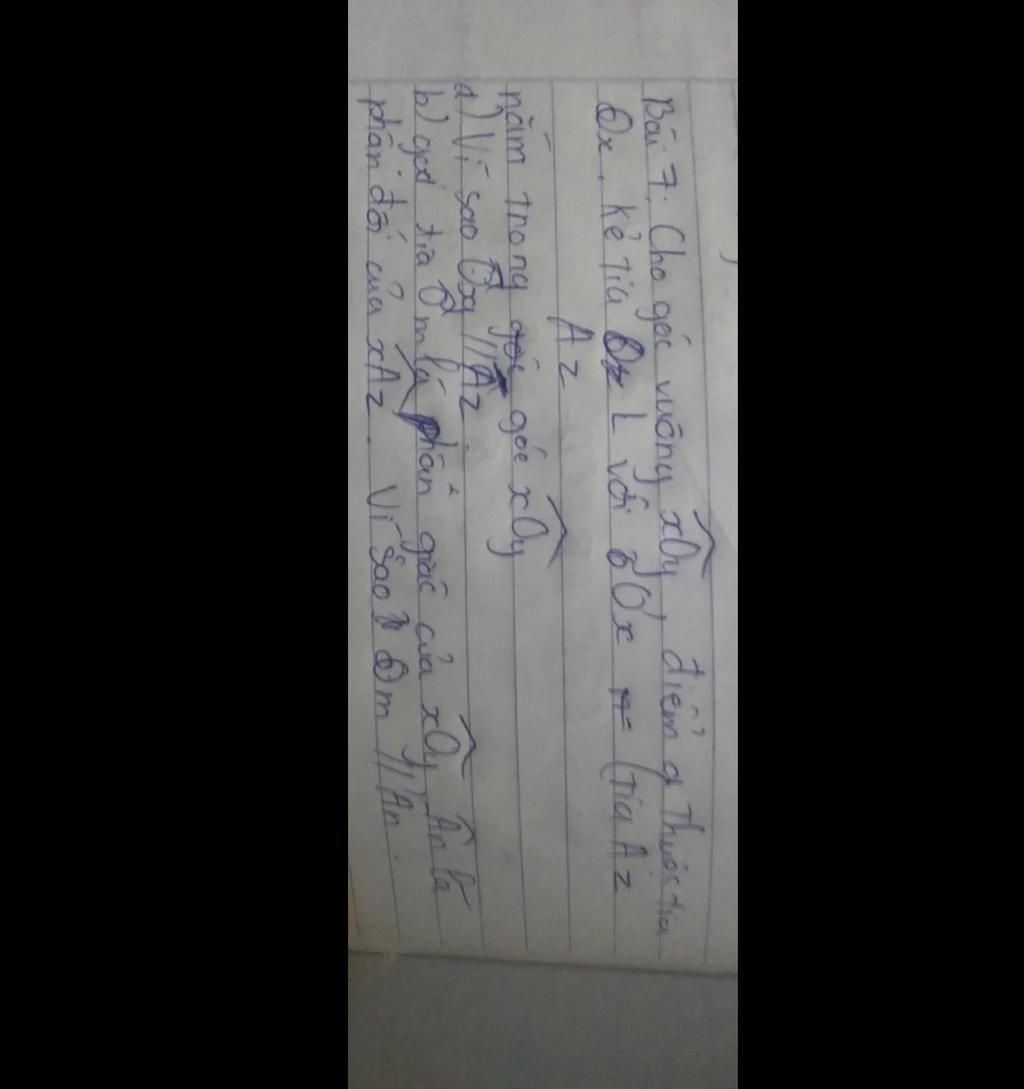 Bài 7. Cho góc vuông xOy, điểm a thuộc tia
Ox. Kẻ tia ⊥ với Ox (tia Az
Az
nằm trong góc xOy
a) Vì sao Oy // Az.
b) gọi tia Om là phân giác của xOy, An là
phân đối của xAz. Vì sao Om // An.